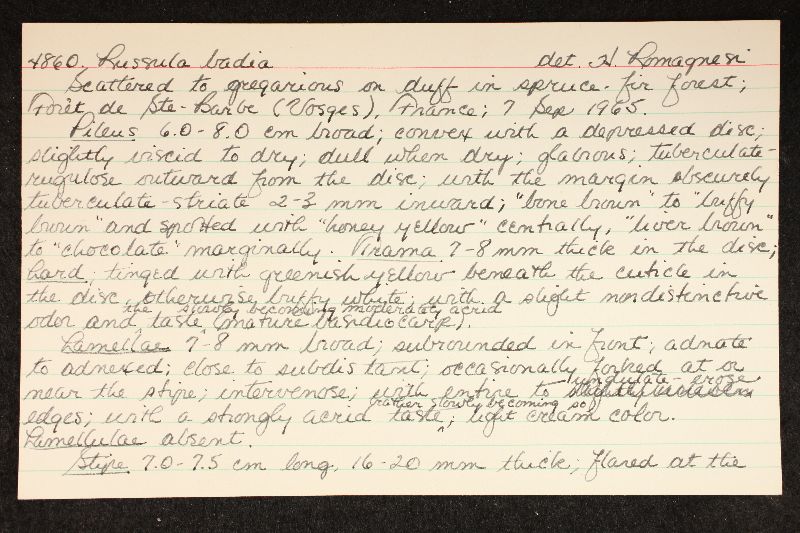 4860. Russula badia det. H. Romagnesi
Scattered to gregarious on duff in spruce-fir forest;
Forêt de Ste-Barbe (Vosges), France; 7 Sep 1965.
Pileus 6.0-8.0 cm broad; convex with a depressed disc;
slightly viscid to dry; dull when dry; glabrous; tuberculate-
rugulose outward from the disc; with the margin obscurely
tuberculate-striate 2-3 mm inward; "bone brown" to "buffy
brown" and spotted with "honey yellow" centrally, "liver brown"
to "chocolate" marginally. Trama 7-8 mm thick in the disc;
hard; tinged with greenish yellow beneath the cuticle in
the disc, otherwise buffy white; with a slight nondistinctive
the slowly becoming moderately acrid
odor and taste (mature basidiocarp).
Lamellae 7-8 mm broad; subrounded in front; adnate
to adnexed; close to subdistant; occasionally forked at or
undulate-erose
near the stipe; intervenose; with entire to slightly
rather slowly becoming so
edges; with a strongly acrid taste; light cream color.
Lamellulae absent.
Stipe 7.0-7.5 cm long, 16-20 mm thick; flared at the